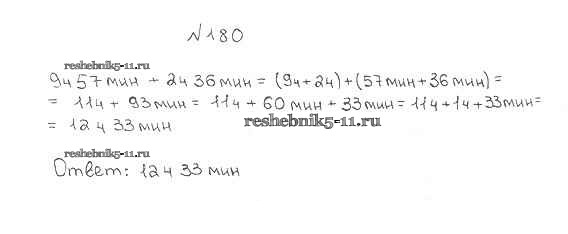 №180
reshebnik5-11.ru
9ч 57 мин + 2ч 36 мин = (9ч+2ч)+(57мин+36 мин) =
= 11ч + 93 мин = 11ч + 60 мин + 33 мин = 11ч+1ч+33мин=
= 12 ч 33 мин
reshebnik5-11.ru
reshebnik5-11.ru
Ответ: 12ч 33 мин